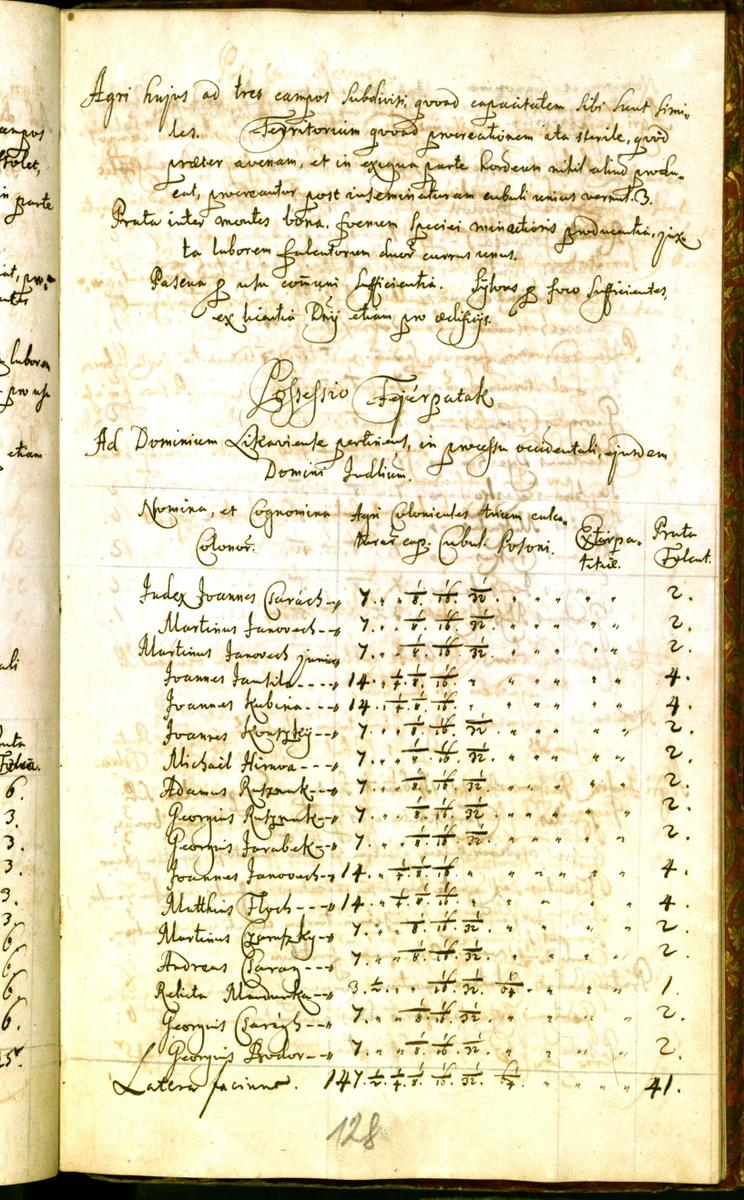 Agri hujus ad tres campos subdivisi quoad capacitatem sibi sunt simi-
les. Territorium quoad procreationem ita sterile, quod
præter avenam, et in exigua parte hordeum nihil aliud produ-
cat, procreantur post inseminaturam cubuli unius vernal. 3.
Prata inter montes bona, foenum speciei minutioris producentia, jux-
ta laborem falcatorum duor currus unus.
Pascua p usu com̄uni sufficientia. Sylvas p foco sufficientes,
ex licentia Dnӱ etiam pro ædificÿs.
Possessio Fejérpatak
Ad Dominium Likaviense pertinens, in processu occidentali, ejusdem
Domini Judlium.
Nomina, et Cognomina Agri Colonicales trium calca-
Colonor. turar cap. Cubul. Posoni. Extirpa- Prata
titiæ. Falcat.
Judex Joannes Csarách 7. " " 1/8. 1/16. 1/32. " " " " " 2.
Martinus Janovech 7. " " 1/8. 1/16. 1/32. " " " " " 2.
Martinus Janovech junior 7. " " 1/8. 1/16. 1/32. " " " " " 2.
Joannes 14. " 1/4. 1/8. 1/16. " " " " " " 4.
Joannes Kubina 14. " 1/4. 1/8. 1/16. " " " " " " 4.
Joannes 7. " " 1/8. 1/16. 1/32. " " " " " 2.
Michael Hirnva 7. " " 1/8. 1/16. 1/32. " " " " " 2.
Adamus 7. " " 1/8. 1/16. 1/32. " " " " " 2.
Georgius 7. " " 1/8. 1/16. 1/32. " " " " " 2.
Georgius Jarabek 7. " " 1/8. 1/16. 1/32. " " " " " 2.
Joannes Janovech 14. " 1/4. 1/8. 1/16. " " " " " " 4.
Matthias Floch 14. " 1/4. 1/8. 1/16. " " " " " " 4.
Martinus 7. " " 1/8. 1/16. 1/32. " " " " " 2.
Andreas 7. " " 1/8. 1/16. 1/32. " " " " " 2.
Relicta 3. 1/2. " " 1/16. 1/32. 1/64. " " " " 1.
Georgius Csarágh 7. " " 1/8. 1/16. 1/32. " " " " " 2.
Georgius Bodor 7. " " 1/8. 1/16. 1/32. " " " " " 2.
Latera faciunt. 147. 1/2. 1/4. 1/8. 1/16. 1/32. 1/64. " " " " 41.
128